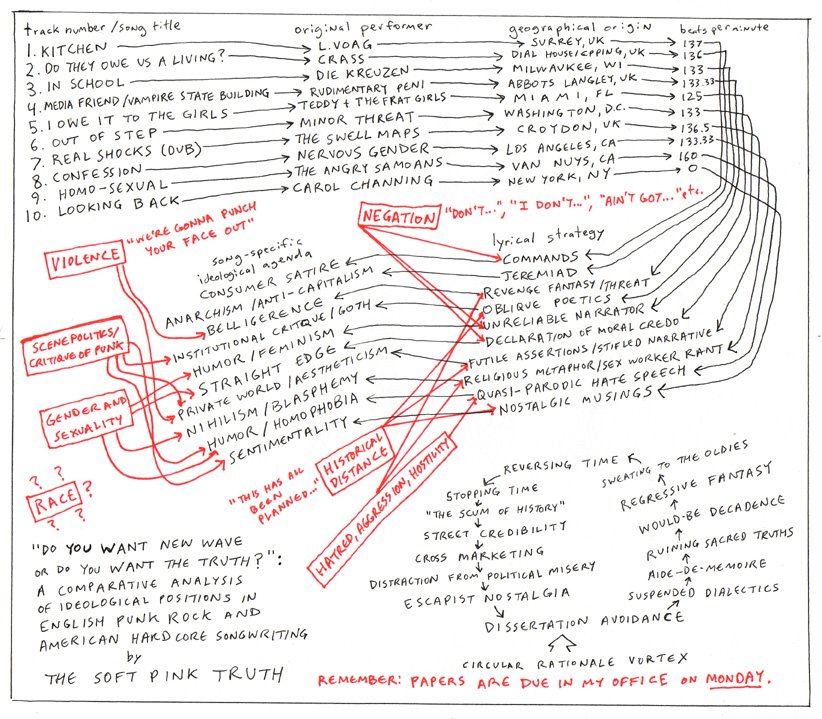 track number / song title original performer geographical origin beats per minute
1. KITCHEN L. VOAG SURREY, UK 137
2. DO THEY OWE US A LIVING? CRASS DIAL HOUSE/EPPING, UK 136
3. IN SCHOOL DIE KREUZEN MILWAUKEE, WI 133
4. MEDIA FRIEND/VAMPIRE STATE BUILDING RUDIMENTARY PENI ABBOTS LANGLEY, UK 133.33
5. I OWE IT TO THE GIRLS TEDDY + THE FRAT GIRLS MIAMI, FL 125
6. OUT OF STEP MINOR THREAT WASHINGTON, D.C. 133
7. REAL SHOCKS (DUB) THE SWELL MAPS CROYDON, UK 136.5
8. CONFESSION NERVOUS GENDER LOS ANGELES, CA 133.33
9. HOMO-SEXUAL THE ANGRY SAMOANS VAN NUYS, CA 160
10. LOOKING BACK CAROL CHANNING NEW YORK, NY 0
NEGATION "DON'T...", "I DON'T...", "AIN'T GOT..." etc.
VIOLENCE
"WE'RE GONNA PUNCH
YOUR FACE OUT"
SCENE POLITICS/
CRITIQUE OF PUNK
GENDER AND
SEXUALITY
? ?
RACE ?
? ?
song-specific
ideological agenda
CONSUMER SATIRE
ANARCHISM/ANTI-CAPITALISM
BELLIGERENCE
INSTITUTIONAL CRITIQUE/GOTH
HUMOR/FEMINISM
STRAIGHT EDGE
PRIVATE WORLD/AESTHETICISM
NIHILISM/BLASPHEMY
HUMOR/HOMOPHOBIA
SENTIMENTALITY
lyrical strategy
COMMANDS
JEREMIAD
REVENGE FANTASY/THREAT
OBLIQUE POETICS
UNRELIABLE NARRATOR
DECLARATION OF MORAL CREDO
FUTILE ASSERTIONS/STIFLED NARRATIVE
RELIGIOUS METAPHOR/SEX WORKER RANT
QUASI-PARODIC HATE SPEECH
NOSTALGIC MUSINGS
"THIS HAS ALL
BEEN
PLANNED..."
HISTORICAL
DISTANCE
HATRED, AGGRESSION, HOSTILITY
REVERSING TIME
STOPPING TIME
"THE SCUM OF HISTORY"
STREET CREDIBILITY
CROSS MARKETING
DISTRACTION FROM POLITICAL MISERY
ESCAPIST NOSTALGIA
DISSERTATION AVOIDANCE
SWEATING TO THE OLDIES
REGRESSIVE FANTASY
WOULD-BE DECADENCE
RUINING SACRED TRUTHS
AIDE-DE-MEMOIRE
SUSPENDED DIALECTICS
CIRCULAR RATIONALE VORTEX
"DO YOU WANT NEW WAVE
OR DO YOU WANT THE TRUTH?":
A COMPARATIVE ANALYSIS
OF IDEOLOGICAL POSITIONS IN
ENGLISH PUNK ROCK AND
AMERICAN HARDCORE SONGWRITING
by
THE SOFT PINK TRUTH
REMEMBER: PAPERS ARE DUE IN MY OFFICE ON MONDAY.